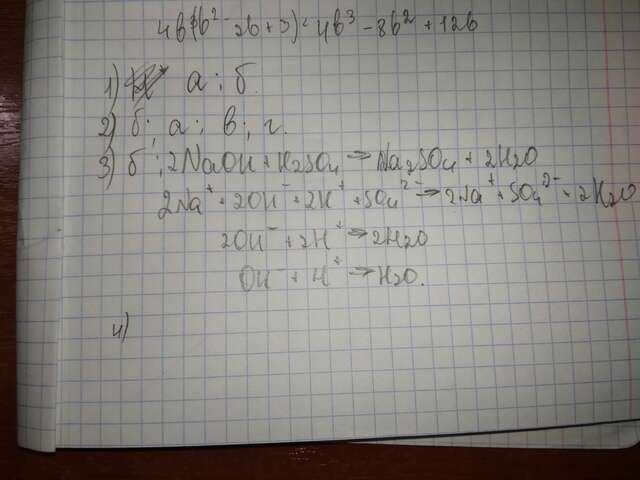 4b(b² - 2b + 3) = 4b³ - 8b² + 12b
1) а; б.
2) б; а; в; г.
3) б; 2NaOH + H₂SO₄ ⇒ Na₂SO₄ + 2H₂O
2Na⁺ + 2OH⁻ + 2H⁺ + SO₄²⁻ ⇒ 2Na⁺ + SO₄²⁻ + 2H₂O
2OH⁻ + 2H⁺ ⇒ 2H₂O
OH⁻ + H⁺ ⇒ H₂O.
4)